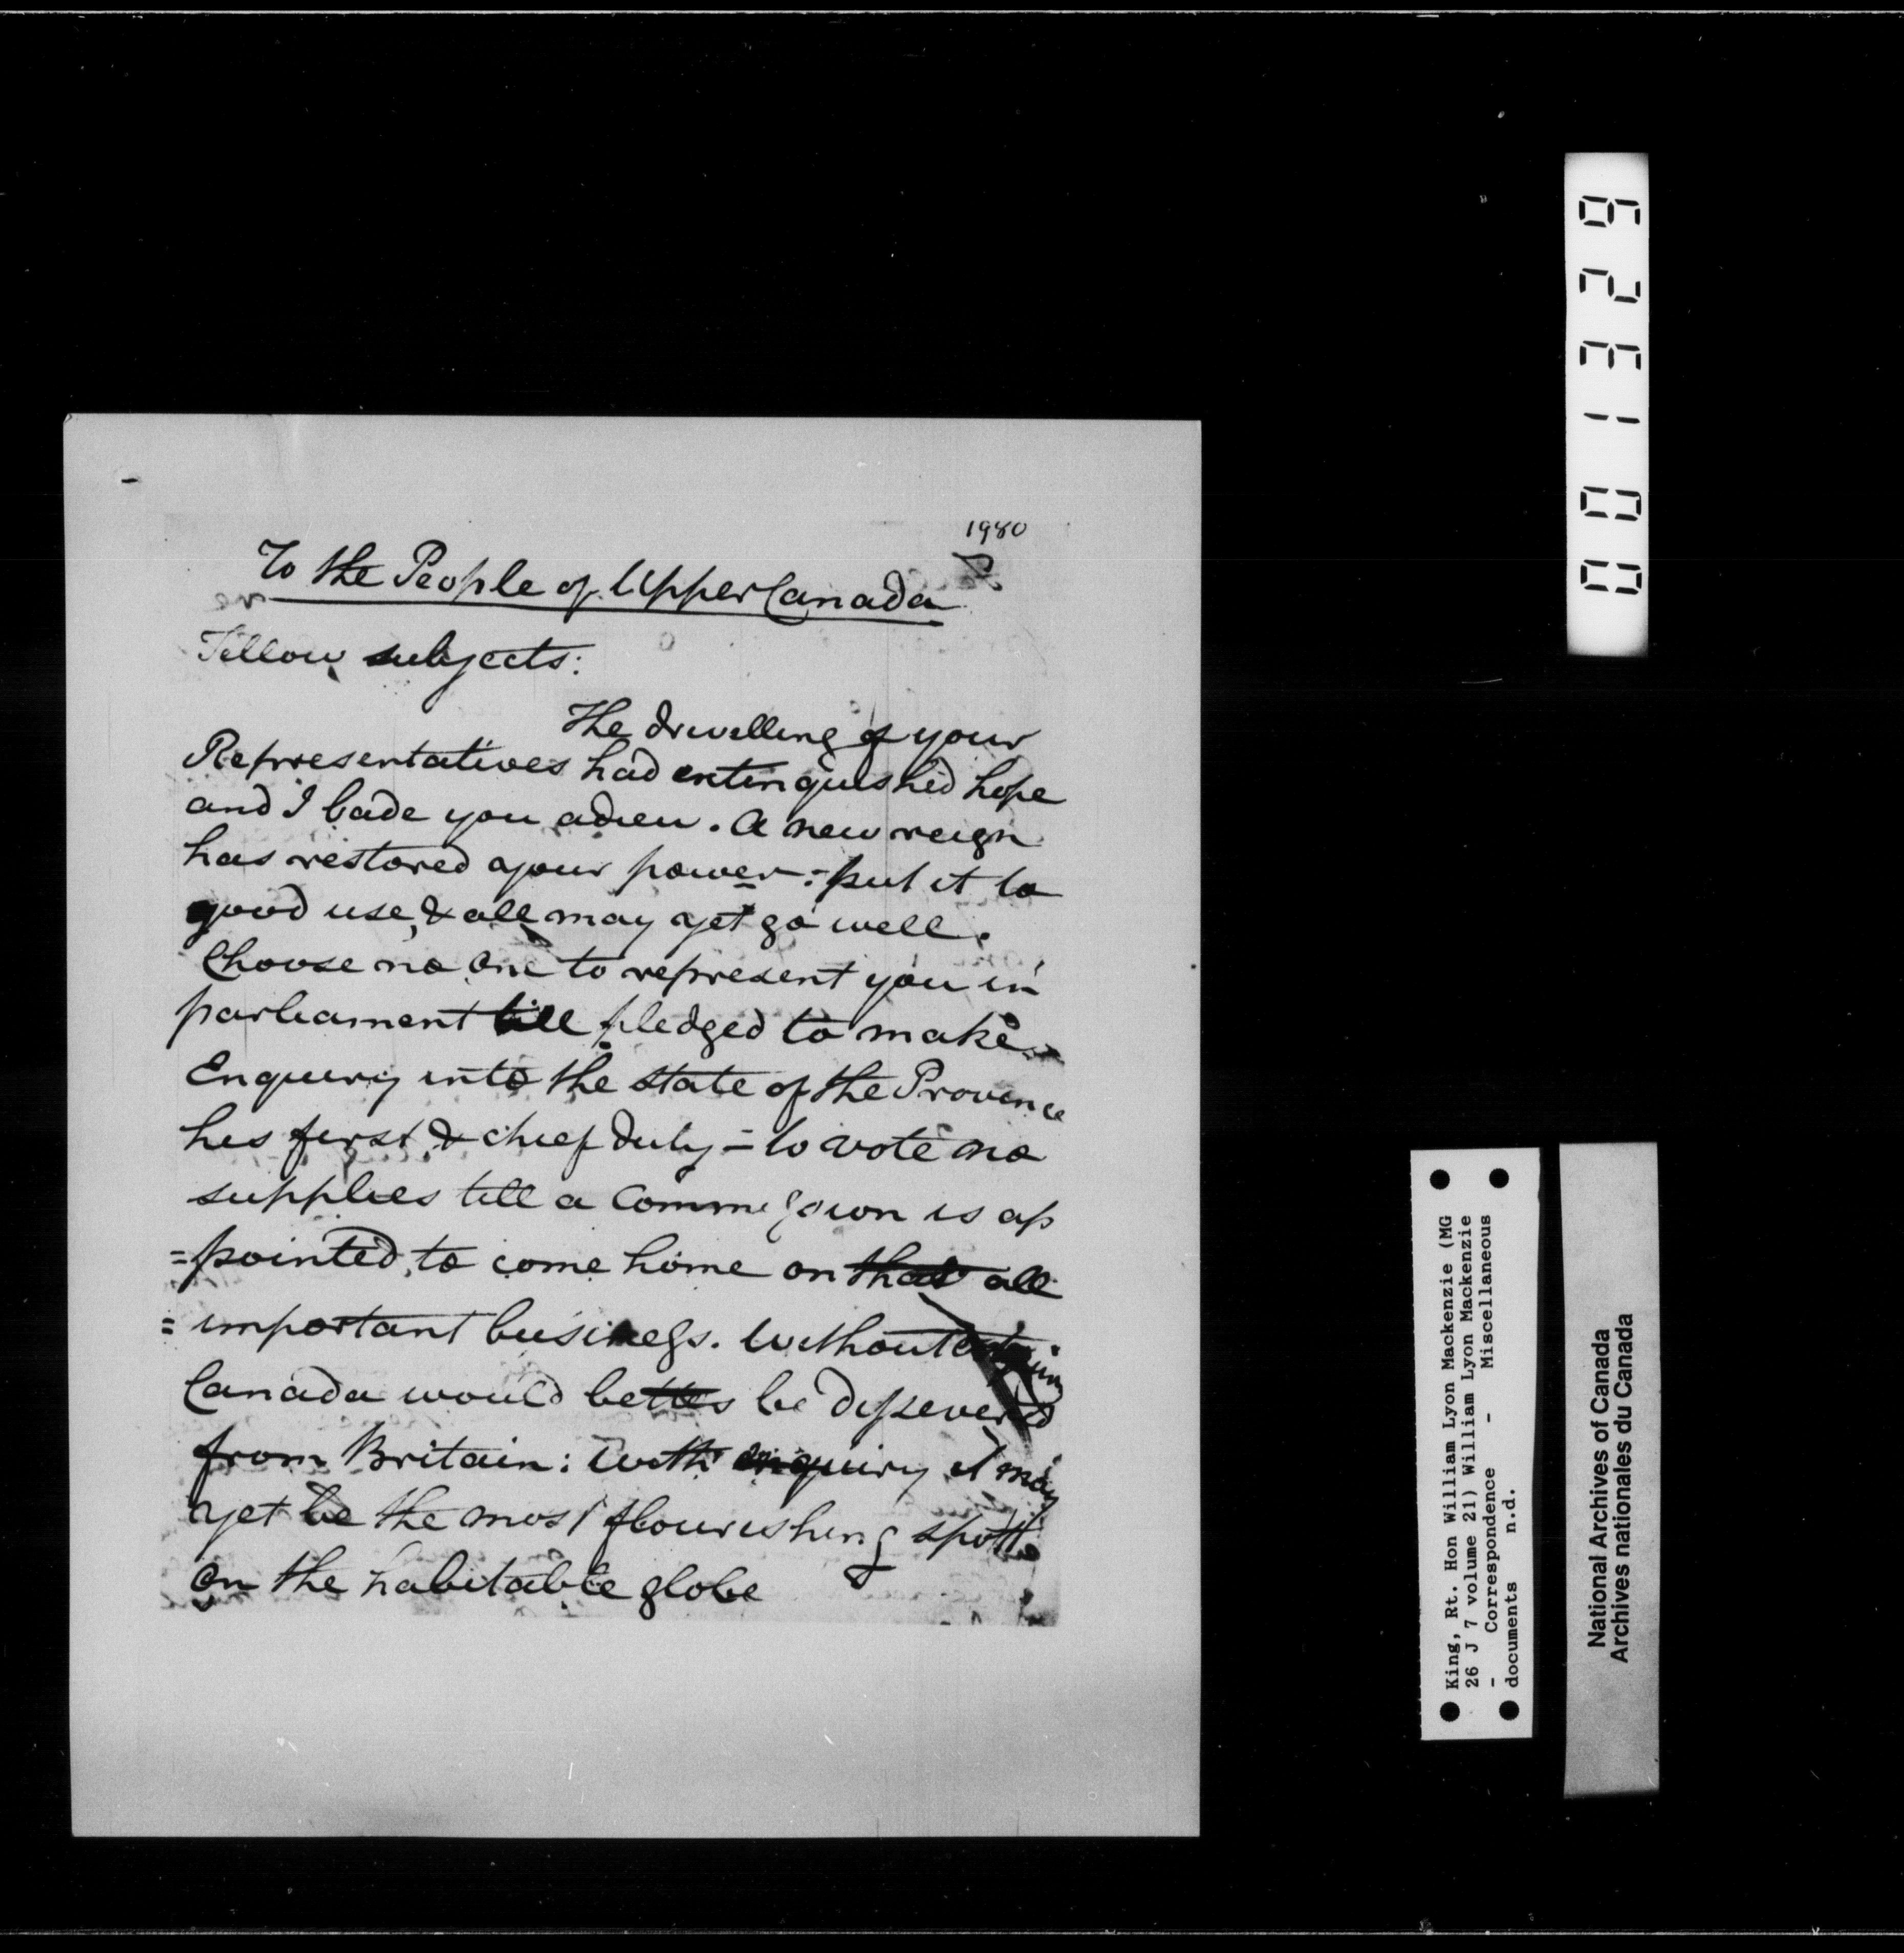 1980
To the People of Upper Canada
Fellow subjects:
The drivelling of your
Representatives had extinguished hope
and I bade you adieu. A new reign
has restored your power: put it to
good use, & all may yet go well.
Choose no one to represent you in
parliament till pledged to make
Enquiry into the state of the Province
his first & chief duty = to vote no
supplies till a Commission is ap
=pointed, to come home on that all
=important business. Without enquiry
Canada would better be dissevered
from Britain: With enquiry it may
yet be the most flourishing spot
on the habitable globe
001329
King, Rt. Hon William Lyon Mackenzie (MG
26 J 7 volume 21) William Lyon Mackenzie
- Correspondence - Miscellaneous
documents n.d.
National Archives of Canada
Archives nationales du Canada